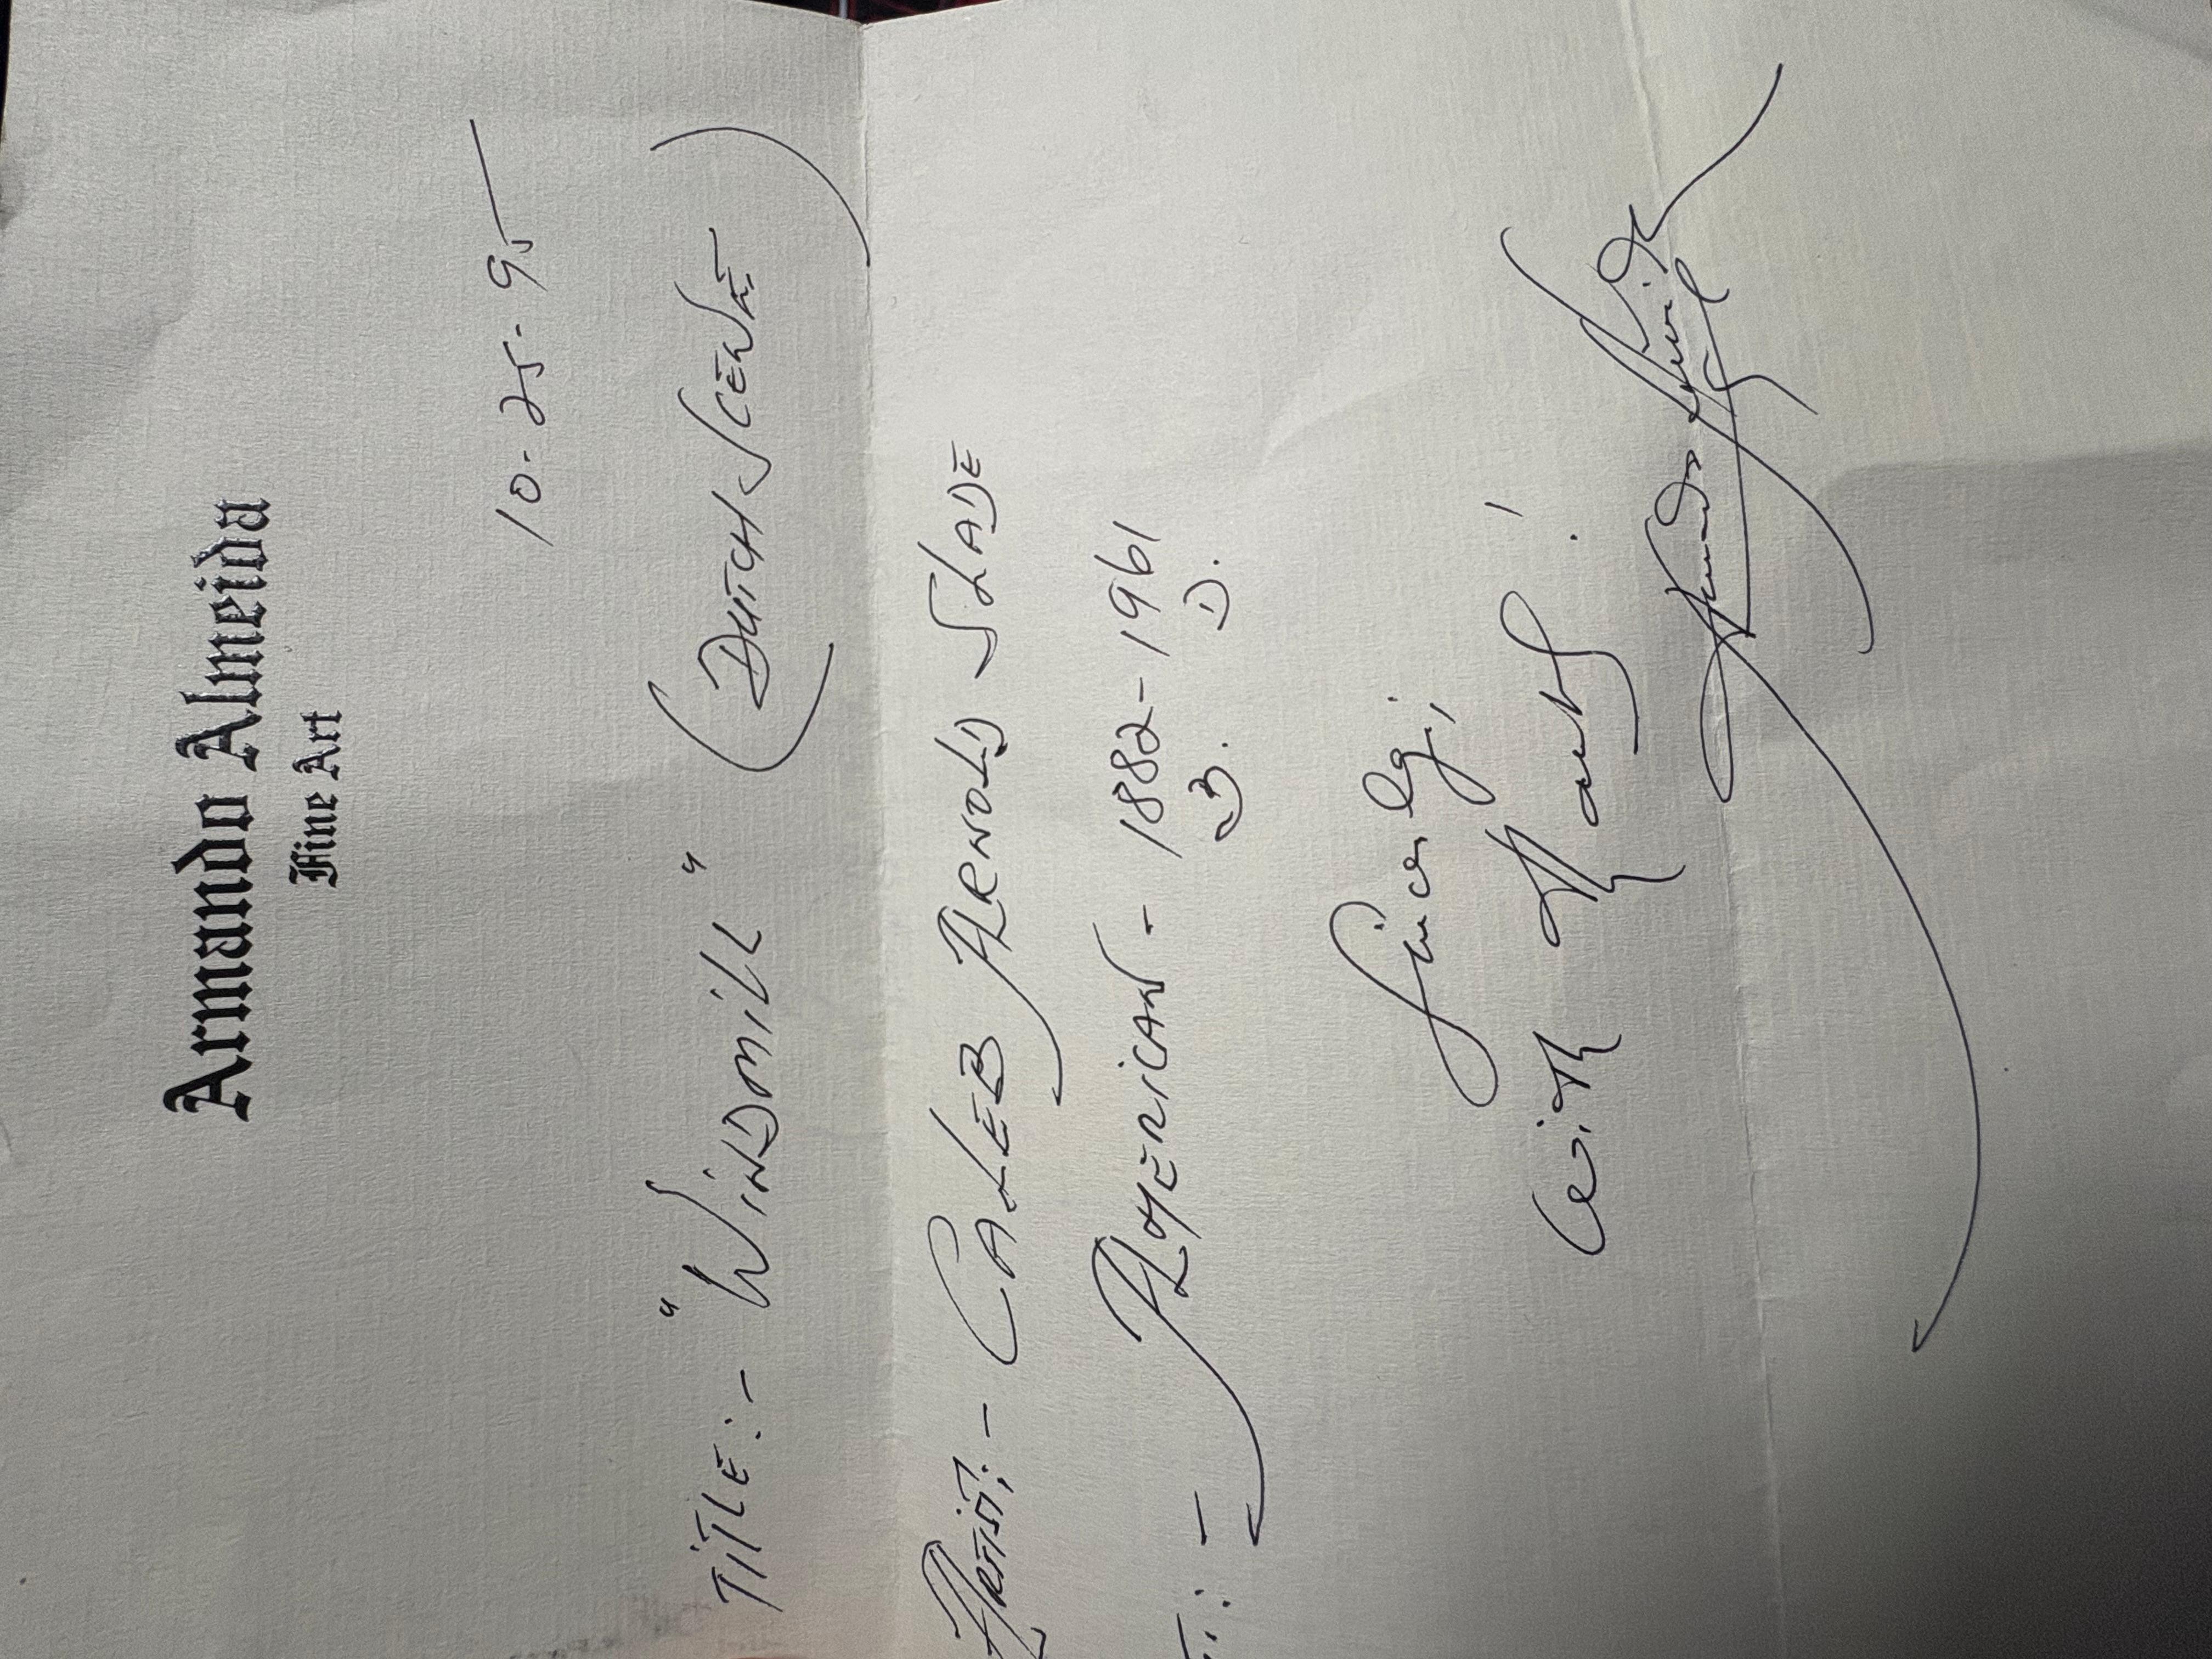 Armando Almeida
Fine Art
10-25-95
TITLE:- "WINDMILL" (DUTCH SCENE)
ARTIST:- CALEB ARNOLD SLADE
:- AMERICAN - 1882-1961
B. D.
Sincerely,
with Thanks!
Armando Almeida